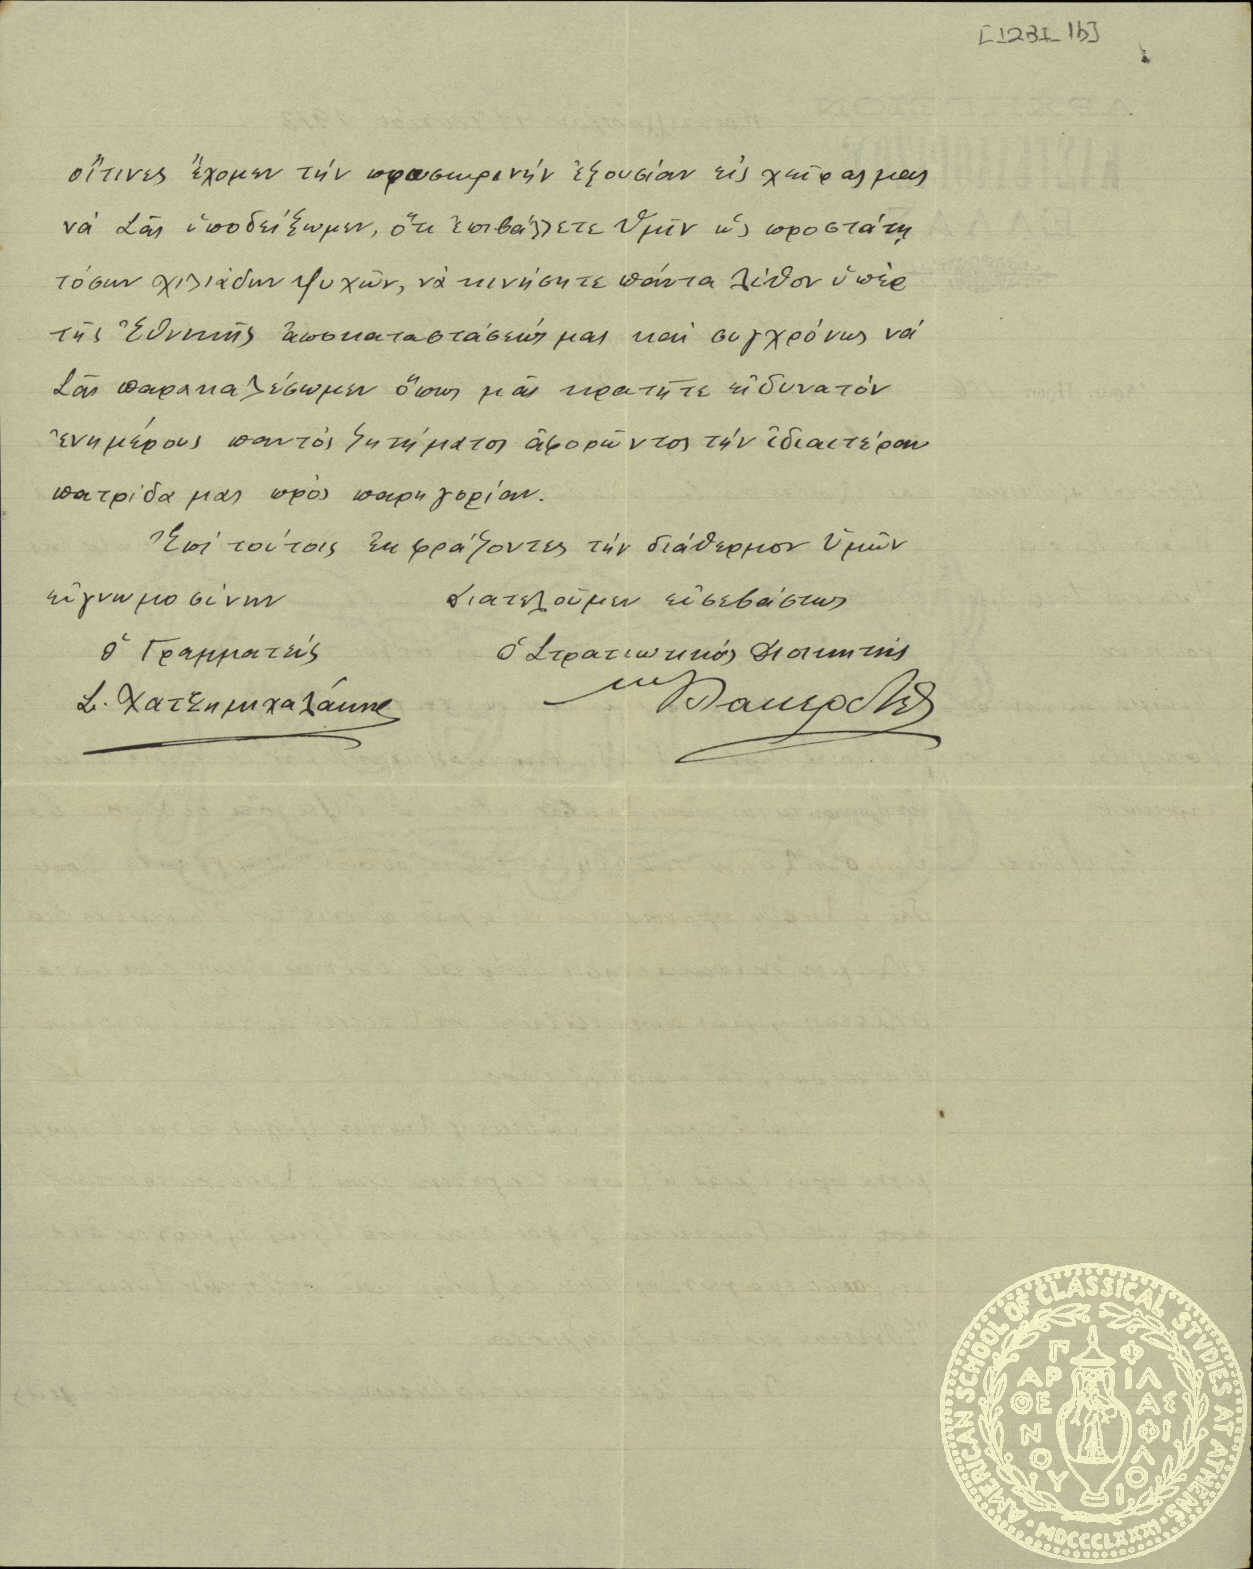 [1281_1b]
οἵτινες ἔχομεν τήν προσωρινήν ἐξουσίαν εἰς χεῖρας μας
νά Σᾶς ὑποδείξωμεν, ὅτι ἐπιβάλλετε Ὑμῖν ὡς προστάτῃ
τόσων χιλιάδων ψυχῶν, νὰ κινήσητε πάντα λίθον ὑπὲρ
τῆς Ἐθνικῆς ἀποκαταστάσεώς μας καί συγχρόνως νά
Σᾶς παρακαλέσωμεν ὅπως μᾶς κρατῆτε εἰ δυνατόν
ἐνημέρους παντός ζητήματος ἀφορῶντος τήν ἰδιαιτέραν
πατρίδα μας πρός παρηγορίαν.
Ἐπί τούτοις ἐκφράζοντες τήν διάθερμον Ὑμῶν
εὐγνωμοσύνην διατελοῦμεν εὐσεβάστως
ὁ Γραμματεύς ὁ Στρατιωτικός Διοικητής
Σ. Χατζημιχαλάκης
AMERICAN SCHOOL OF CLASSICAL STUDIES AT ATHENS
MDCCCLXXXI
ΠΑΡΘΕΝΟΥ ΦΙΛΑΣ ΦΙΛΟΙ